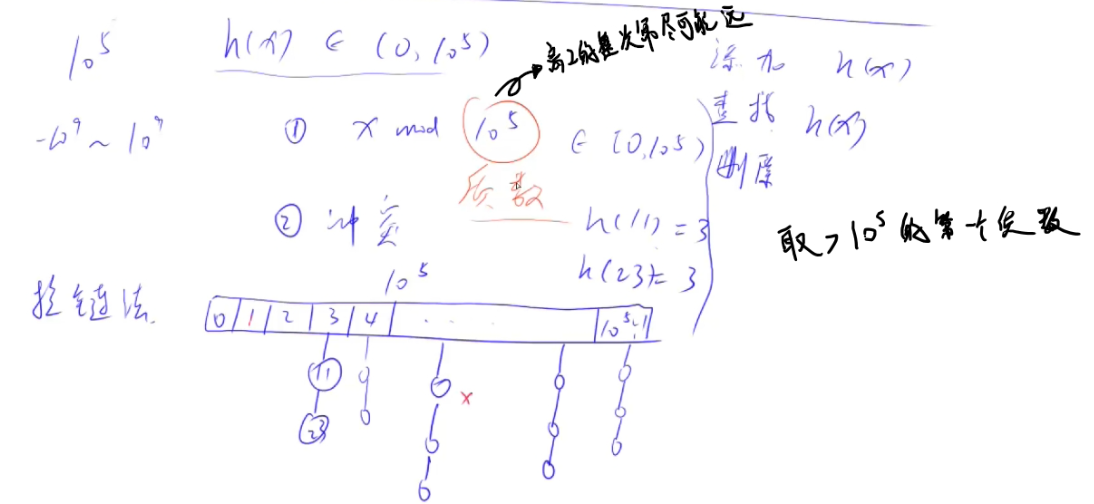 离2的整次幂尽可能远
10^5 h(x) ∈ (0, 10^5)
添加 h(x)
-10^9 ~ 10^9 ① x mod 10^5 ∈ [0, 10^5)
查找 h(x)
质数
删除
② 冲突 h(11) = 3
取>10^5的第一个质数
h(23) = 3
拉链法 10^5
0 1 2 3 4 ... 10^5-1
11
x
23